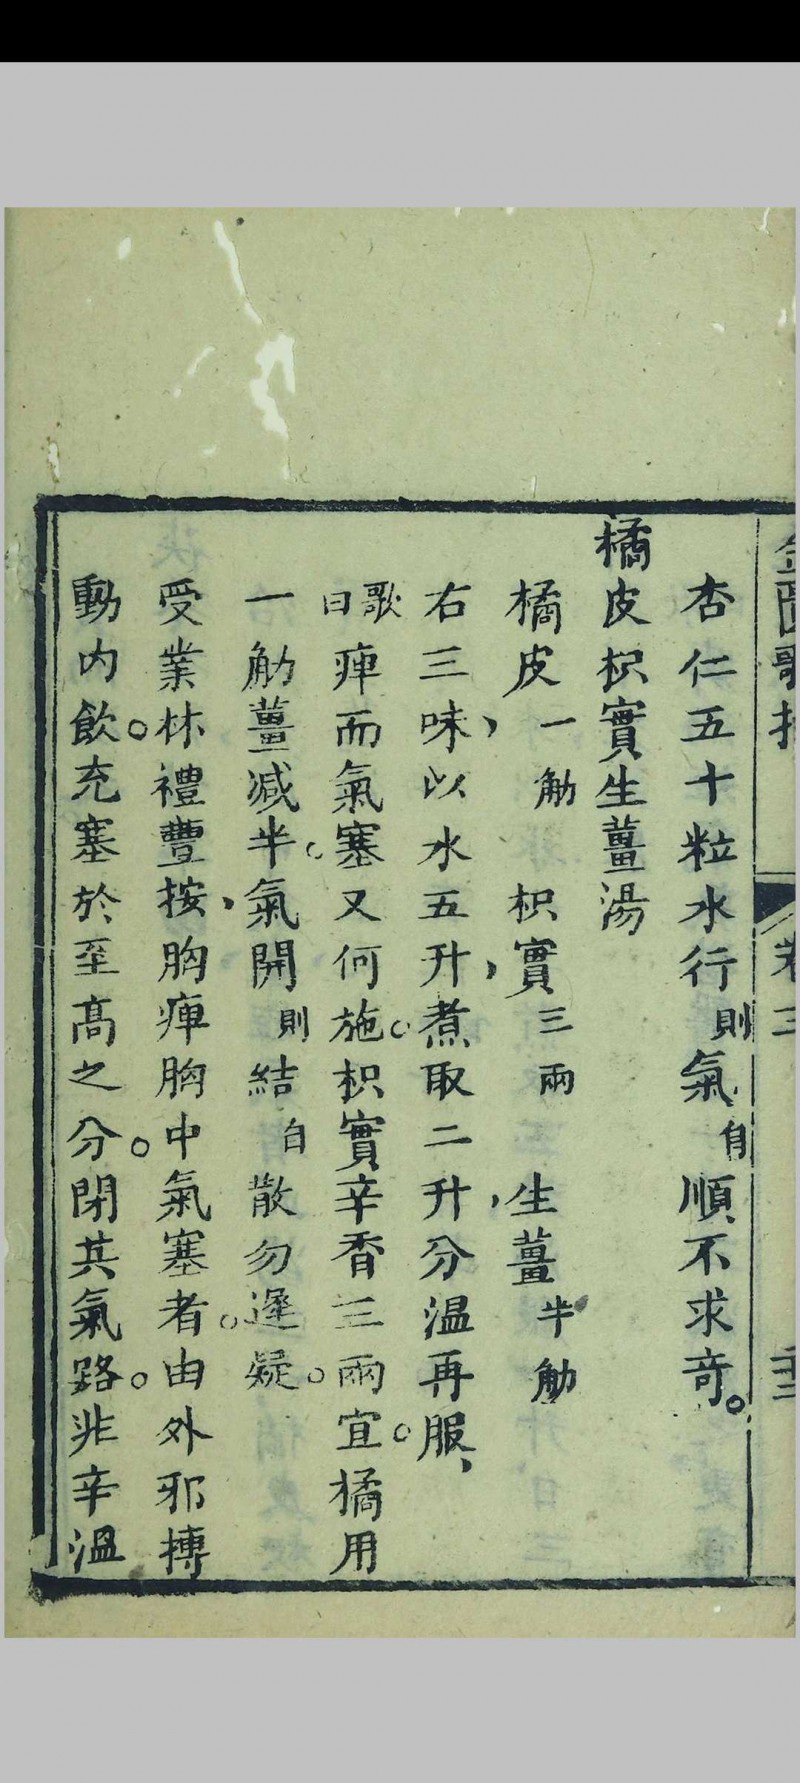 金匱歌括 卷三 二十二
杏仁五十粒水行則氣自順不求奇。
橘皮枳實生薑湯
橘皮一觔 枳實三兩 生薑半觔
右三味，以水五升，煮取二升，分溫再服、
歌曰痺而氣塞又何施。枳實辛香三兩宜。橘用
一觔薑减半。氣開則結自散勿遲疑。
受業林禮豊按，胸痺胸中氣塞者。由外邪搏
動內飲。充塞於至高之分。閉其氣路。非辛溫